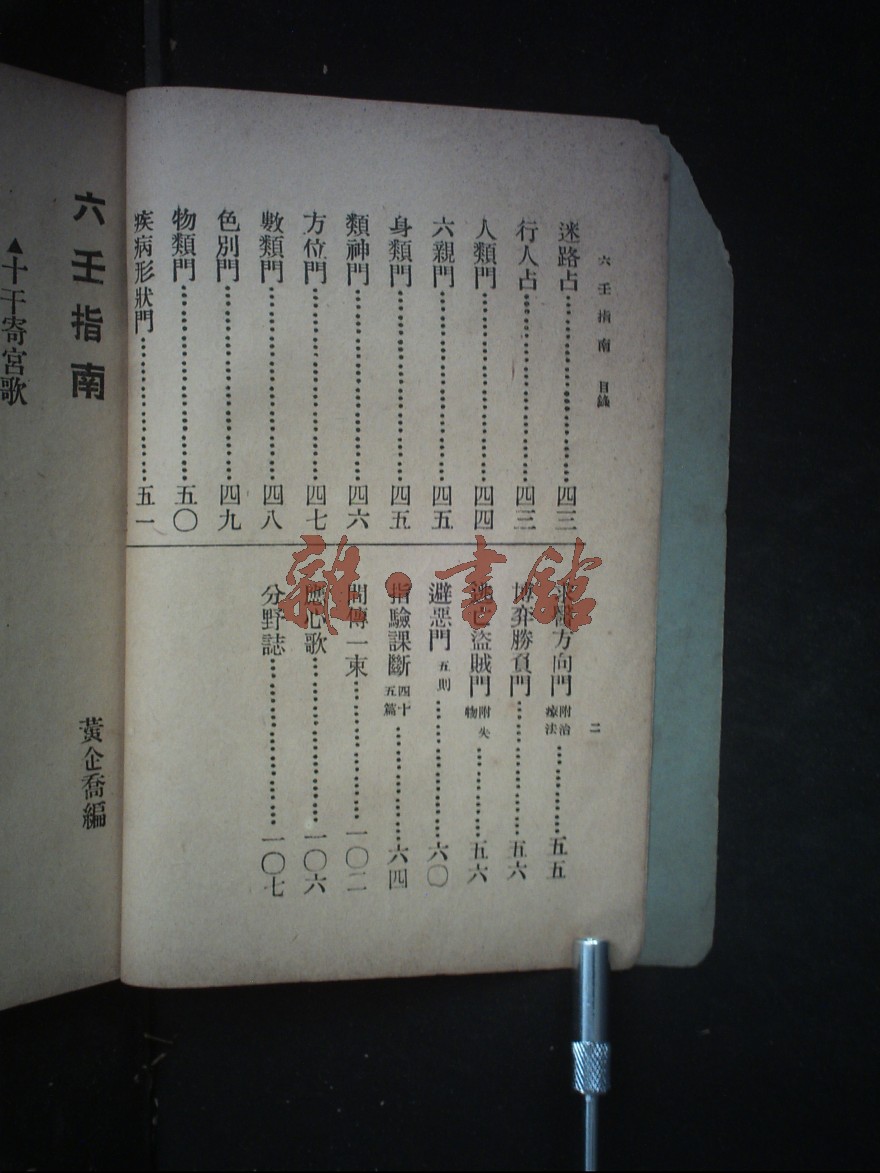 六壬指南 目錄
二
迷路占……四三
行人占……四三
人類門……四四
六親門……四五
身類門……四五
類神門……四六
方位門……四七
數類門……四八
色別門……四九
物類門……五〇
疾病形狀門……五一
方向門 附治療法……五五
博弈勝負門……五六
逃亡盜賊門 附失物……五六
避惡門 五則……六〇
指驗課斷 四十五篇……六四
問傳一束……一〇二
應心歌……一〇六
分野誌……一〇七
六壬指南
黃企喬編
▲十干寄宮歌
雜·書館